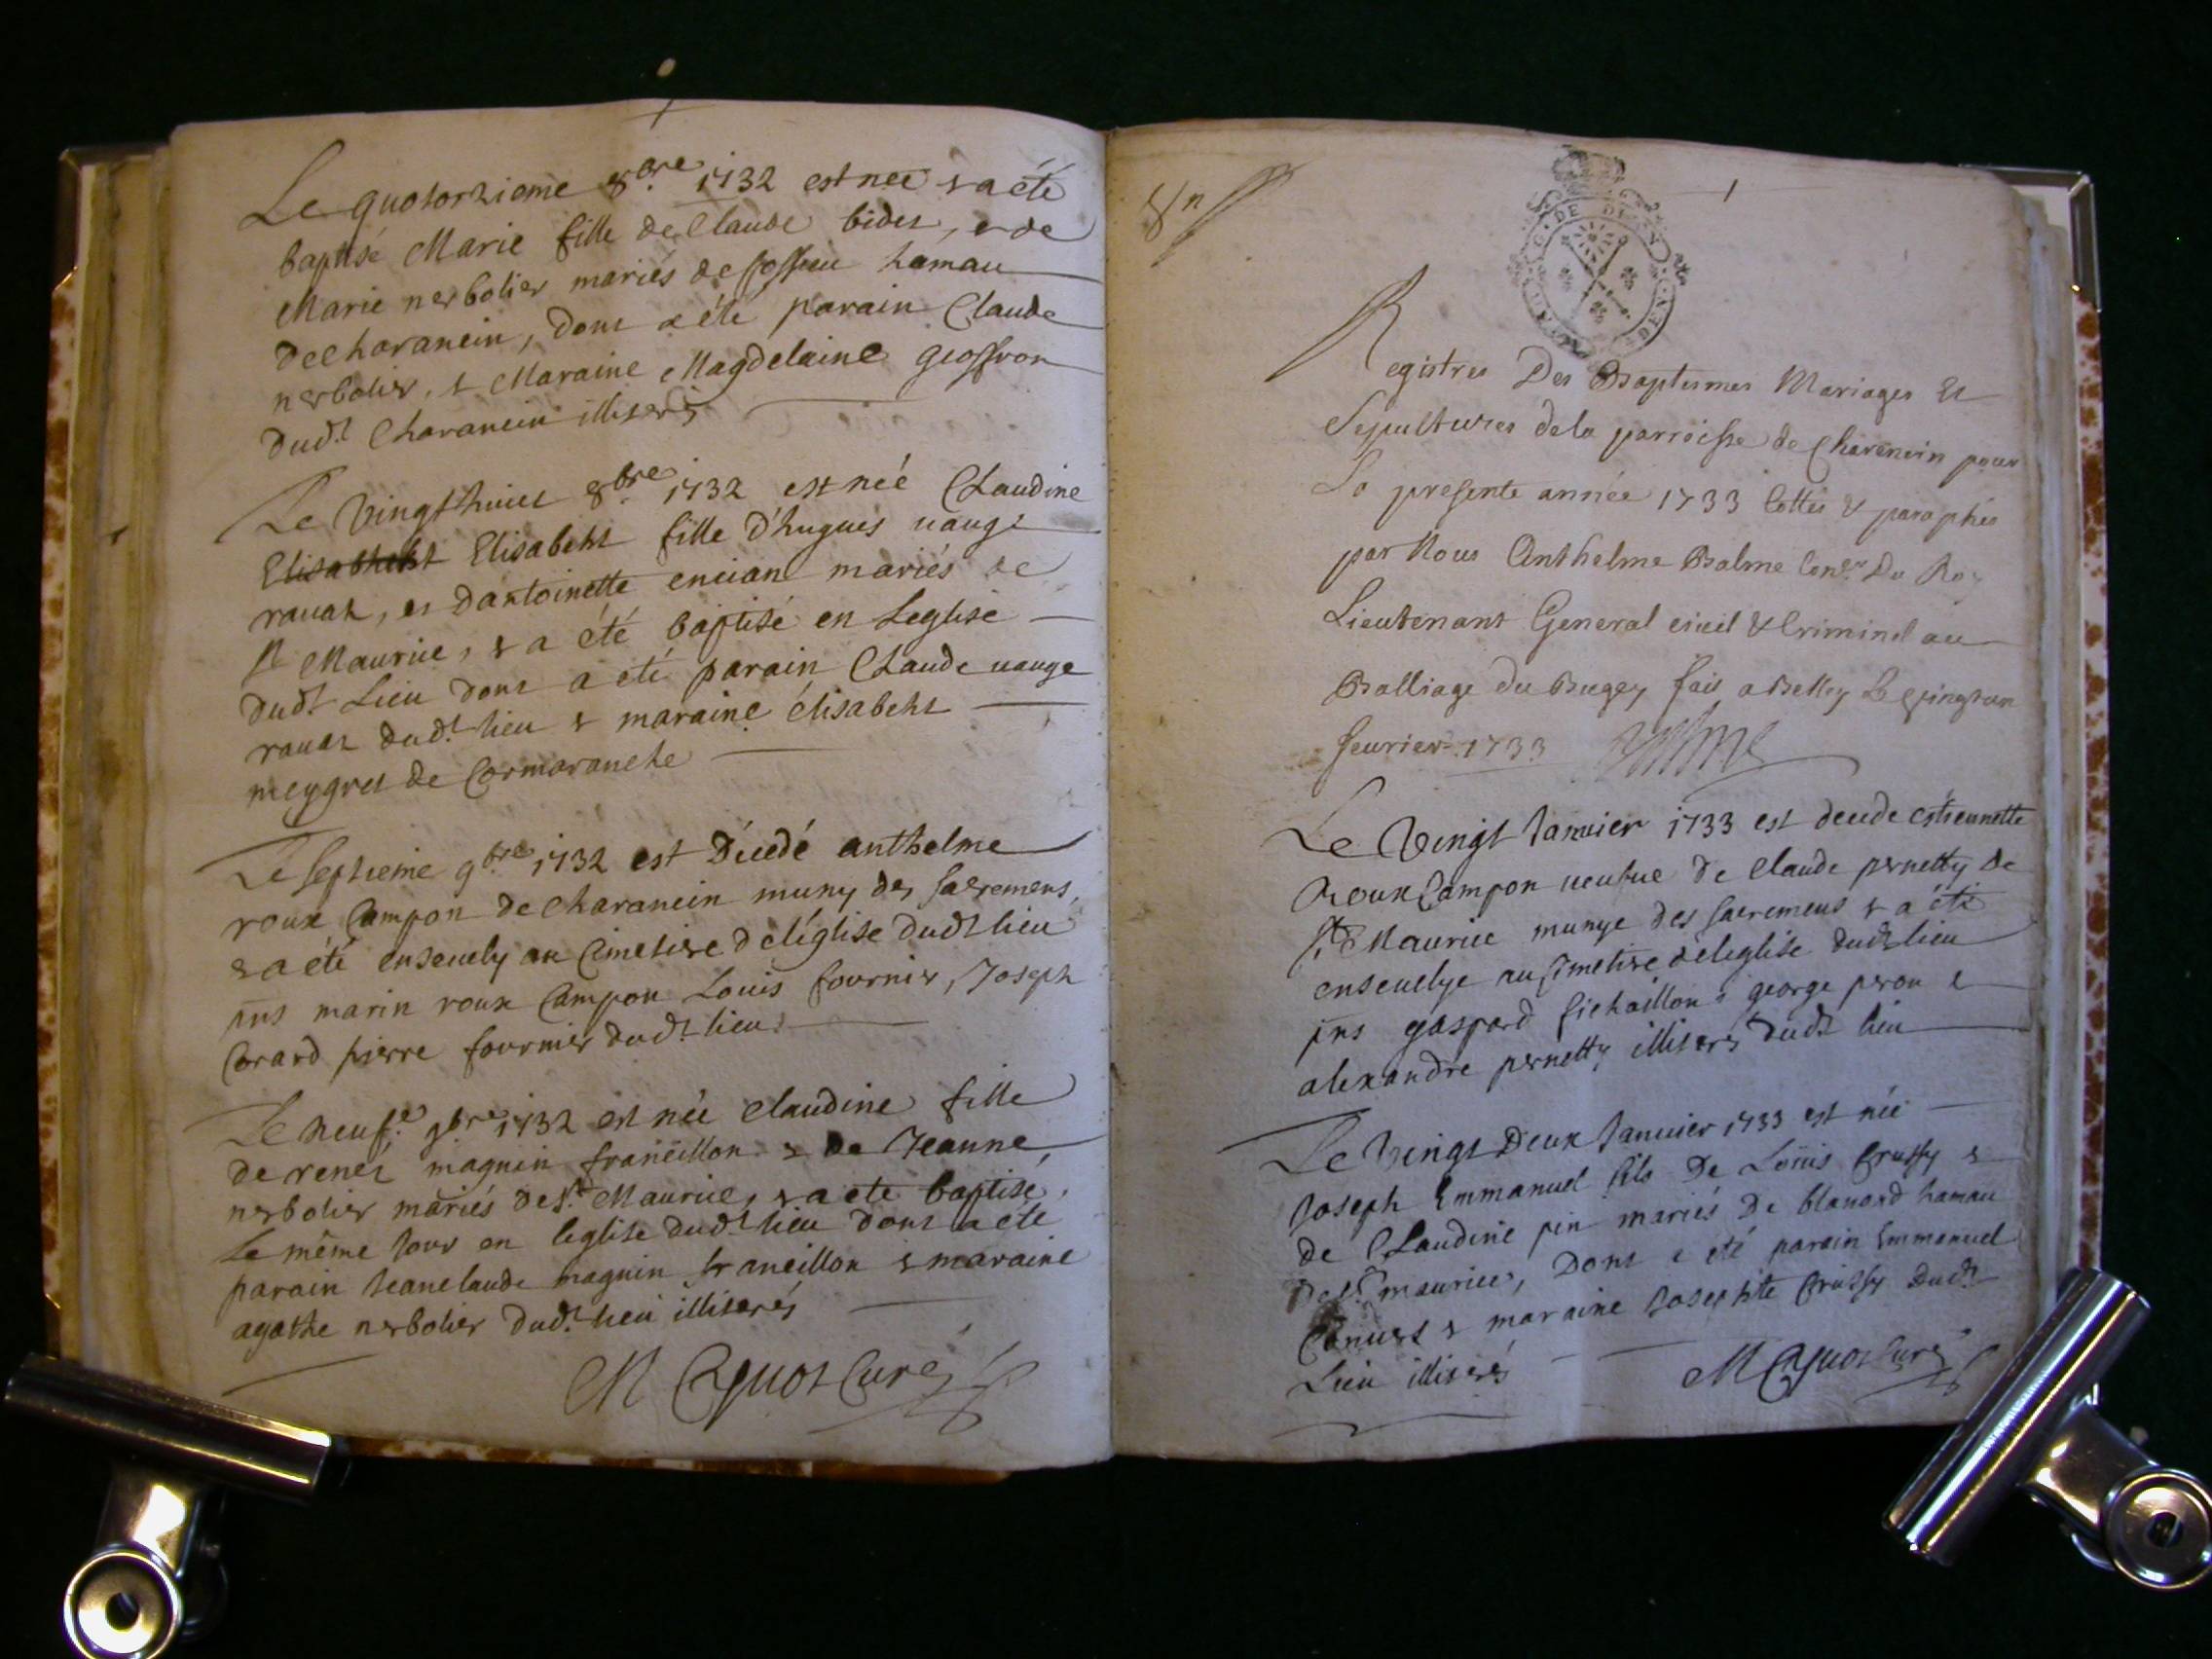 Le quatorzieme 8bre 1732 est neé & a été
baptisé Marie fille de Claude bidet, et de
Marie nerbolier mariés de fosseu hamau
de charancin, dont a été parain Claude
nerbolier, & Maraine Magdelaine geoffron
dudt Charancin illiterés
Le vingthuict 8bre 1732 est née Claudine
Elisabeht fille d'hugues uauge
rauat, et dantoinette encian mariés de
St Maurice, & a été baptisé en Leglise
dudt Lieu dont a été parain Claude uauge
rauat dudt lieu & maraine élisabeht
meygret de Cormaranche
Le septieme 9bre 1732 est Décedé anthelme
roux Campon de Charancin muny des sacremens,
& a été enseuely au Cimetiere de léglise dudt lieu
pns marin roux Campon Louis fournier, Joseph
Corard pierre fournier dudt lieu
Le neufe 9bre 1732 est née claudine fille
de renét magnin francillon & de Jeanne
nerbolier mariés de St Maurice, & a été baptisé
Le même Jour en leglise dudt lieu dont a été
parain Jeanclaude magnin francillon & maraine
agathe nerbolier dudt lieu illiterés
M Curé
Registres Des Baptesmes Mariages Et
Sepultures de la parroisse de Charencin pour
La presente année 1733 Cottés & paraphés
par Nous Anthelme Balme Coner Du Roy
Lieutenant General ciuil & Criminel au
Balliage du Bugey fait a Belley Le vingt un
feurier 1733 Balme
Le Vingt Januier 1733 est decede estiennette
Roux Campon ueufue de Claude pernetty de
St Maurice munye des sacremens & a été
enseuelye au Cimetiere de leglise dudt lieu
pns gaspard fichaillon george peron e
alexandre pernetty illiterés dudt lieu
Le Vingt Deux Januier 1733 est née
Joseph Emmanuel fils De Loüis Crussy &
de Claudine pin mariés De blanard hamau
de St maurice, Dont a été parain Emmanuel
& maraine Josephte Crussy dudt
Lieu illiterés
M Curé